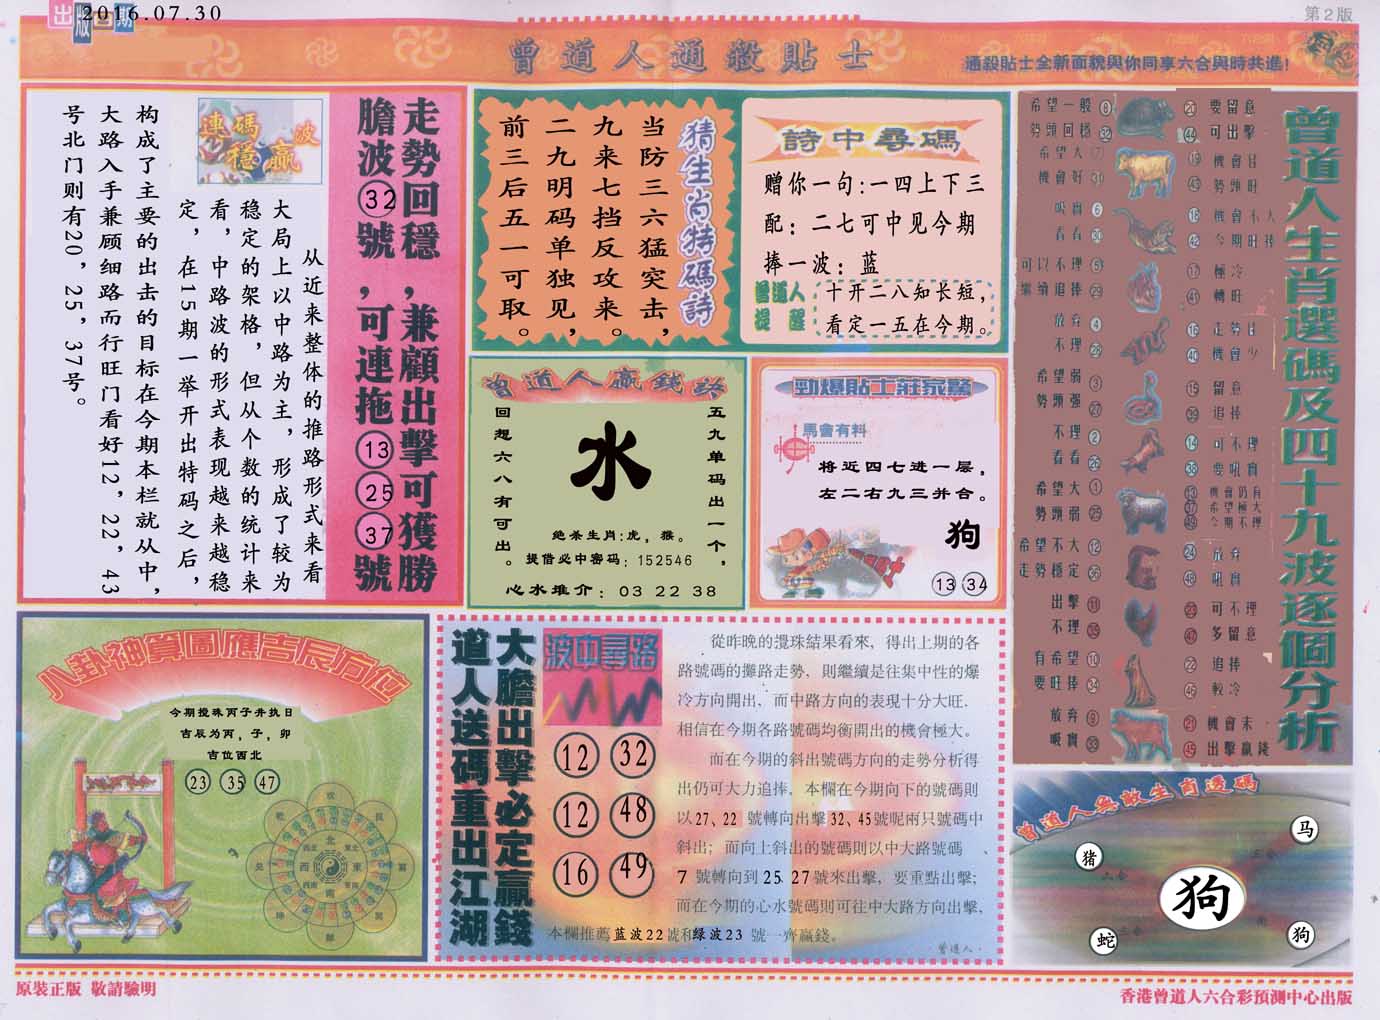 出版日期
2016.07.30
第2版
曾道人通殺貼士
通殺貼士全新面貌與你同享六合與時共進!
走勢回穩,兼顧出擊可獲勝
膽波32號,可連拖132537號
連碼波
穩贏
从近来整体的推路形式来看
大局上以中路为主,形成了较为
稳定的架格,但从个数的统计来
看,中路波的形式表现越来越稳
定,在15期一举开出特码之后,
构成了主要的出击的目标在今期本栏就从中,
大路入手兼顾细路而行旺门看好12,22,43
号北门则有20,25,37号。
猜生肖特碼詩
当防三六猛突击,
九来七挡反攻来。
二九明码单独见,
前三后五一可取。
詩中尋碼
赠你一句:一四上下三
配:二七可中见今期
捧一波:蓝
曾道人
提醒
十开二八知长短,
看定一五在今期。
曾道人贏錢路
五九单码出一个,
回想六八有可出。
水
绝杀生肖:虎,猴。
提借必中密码:152546
心水堆介:03 22 38
勁爆貼士莊家驚
馬會有料
将近四七进一层,
左二右九三并合。
狗
13 34
曾道人生肖選碼及四十九波逐個分析
希望一般 8 20 要留意
勢頭回穩 32 44 可出擊
希望大 7 19 機會佳
機會好 31 43 勢頭旺
吸實 6 18 機會不大
看看 30 42 今期旺捧
可以不理 5 17 極冷
繼續追捧 29 41 轉旺
放弃 4 16 走勢佳
不理 28 40 機會少
希望弱 3 15 留意
勢頭强 27 39 追捧
不理 2 14 可不理
看看 26 38 要吼實
希望大 1 13 機會仍有
37 希望極大
勢頭弱 25 49 今期不理
希望不大 12 24 放弃
走勢穩定 36 48 吼實
出擊 11 23 可不理
不理 35 47 多留意
有希望 10 22 追捧
要旺捧 34 46 較冷
放弃 9 21 機會末
吸實 33 45 出擊贏錢
八卦神算圖應吉辰方位
今期搅珠丙子井执日
吉辰为丙,子,卯
吉位西北
23 35 47
大膽出擊必定贏錢
道人送碼重出江湖
波中尋路
12 32
12 48
16 49
從昨晚的攪珠結果看來,得出上期的各
路號碼的攤路走勢,則繼續是往集中性的爆
冷方向開出,而中路方向的表現十分大旺.
相信在今期各路號碼均衡開出的機會極大。
而在今期的斜出號碼方向的走勢分析得
出仍可大力追捧,本欄在今期向下的號碼則
以27、22 號轉向出擊32、45號呢兩只號碼中
斜出;而向上斜出的號碼則以中大路號碼、
7 號轉向到25 27號來出擊,要重點出擊;
而在今期的心水號碼則可往中大路方向出擊,
本欄推薦蓝波22號和绿波23 號一齊贏錢。
曾道人·
曾道人無敵生肖透碼
马
猪
狗
蛇
狗
原裝正版 敬請驗明
香港曾道人六合彩預測中心出版